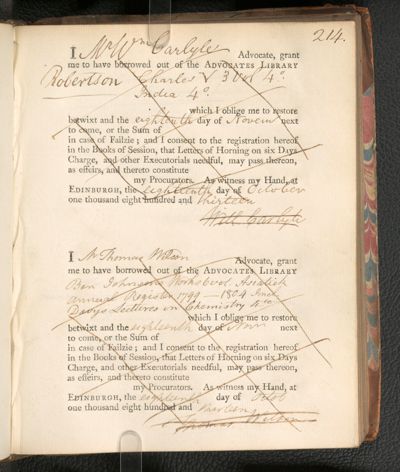 214.
I Mr Wm Carlyle Advocate, grant
me to have borrowed out of the ADVOCATES LIBRARY
Robertson Charles V 3 Vol 4o.
India 4o.
which I oblige me to restore
betwixt and the eighteenth day of Novem next
to come, or the Sum of
in case of Failzie; and I consent to the registration hereof
in the Books of Session, that Letters of Horning on six Days
Charge, and other Executorials needful, may pass thereon,
as effeirs, and thereto constitute
my Procurators. As witness my Hand, at
EDINBURGH, the eighteenth day of October
one thousand eight hundred and thirteen
Will Carlyle
I Mr Thomas Wilson Advocate, grant
me to have borrowed out of the ADVOCATES LIBRARY
Ben Johnsons Works 6 vol Asiatick
annual Register 1799 — 1804
Davys Lectures in Chemistry 4to
which I oblige me to restore
betwixt and the eighteenth day of Nov next
to come, or the Sum of
in case of Failzie; and I consent to the registration hereof
in the Books of Session, that Letters of Horning on six Days
Charge, and other Executorials needful, may pass thereon,
as effeirs, and thereto constitute
my Procurators. As witness my Hand, at
EDINBURGH, the eighteenth day of Octob
one thousand eight hundred and thirteen
Thomas Wilson